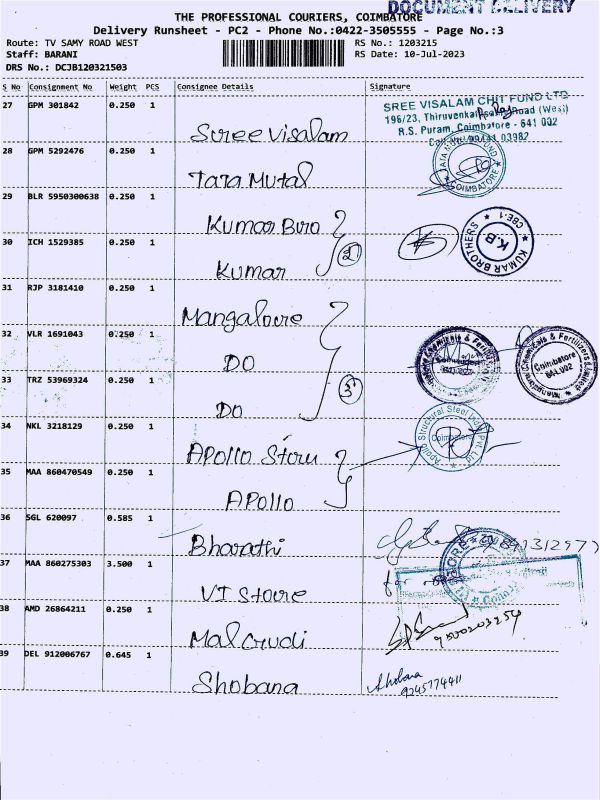 DOCUMENT DELIVERY
THE PROFESSIONAL COURIERS, COIMBATORE
Delivery Runsheet - PC2 - Phone No.:0422-3505555 - Page No.:3
Route: TV SAMY ROAD WEST RS No.: 1203215
Staff: BARANI RS Date: 10-Jul-2023
DRS No.: DCJB120321503
S No Consignment No Weight PCS Consignee Details Signature
27 GPM 301842 0.250 1
SREE VISALAM CHIT FUND LTD
196/23, Thiruvenkatasamy Road (West)
R.S. Puram, Coimbatore - 641 002
Sree Visalam
28 GPM 5292476 0.250 1
TATA MUTUAL FUND
COIMBATORE
Tara Mutal
29 BLR 5950300638 0.250 1
Kumar Bro
KUMAR BROTHERS
K.B
CBE-1
30 ICH 1529385 0.250 1
2
Kumar
31 RJP 3181410 0.250 1
Mangalore
32 VLR 1691043 0.250 1
DO
Coimbatore
641 002
Mangalore Chemicals & Fertilizers Limited
Coimbatore
641 002
33 TRZ 53969324 0.250 1
3
DO
34 NKL 3218129 0.250 1
Apollo Structural Steel India Pvt. Ltd
Coimbatore
APOLLO Storu
35 MAA 860470549 0.250 1
APOllo
36 SGL 620097 0.585 1
Bharathi
37 MAA 860275303 3.500 1
for
VT Store
38 AMD 26864211 0.250 1
Malcrudi
9500203254
39 DEL 912006767 0.645 1
Shobana
Shobana
9245774411